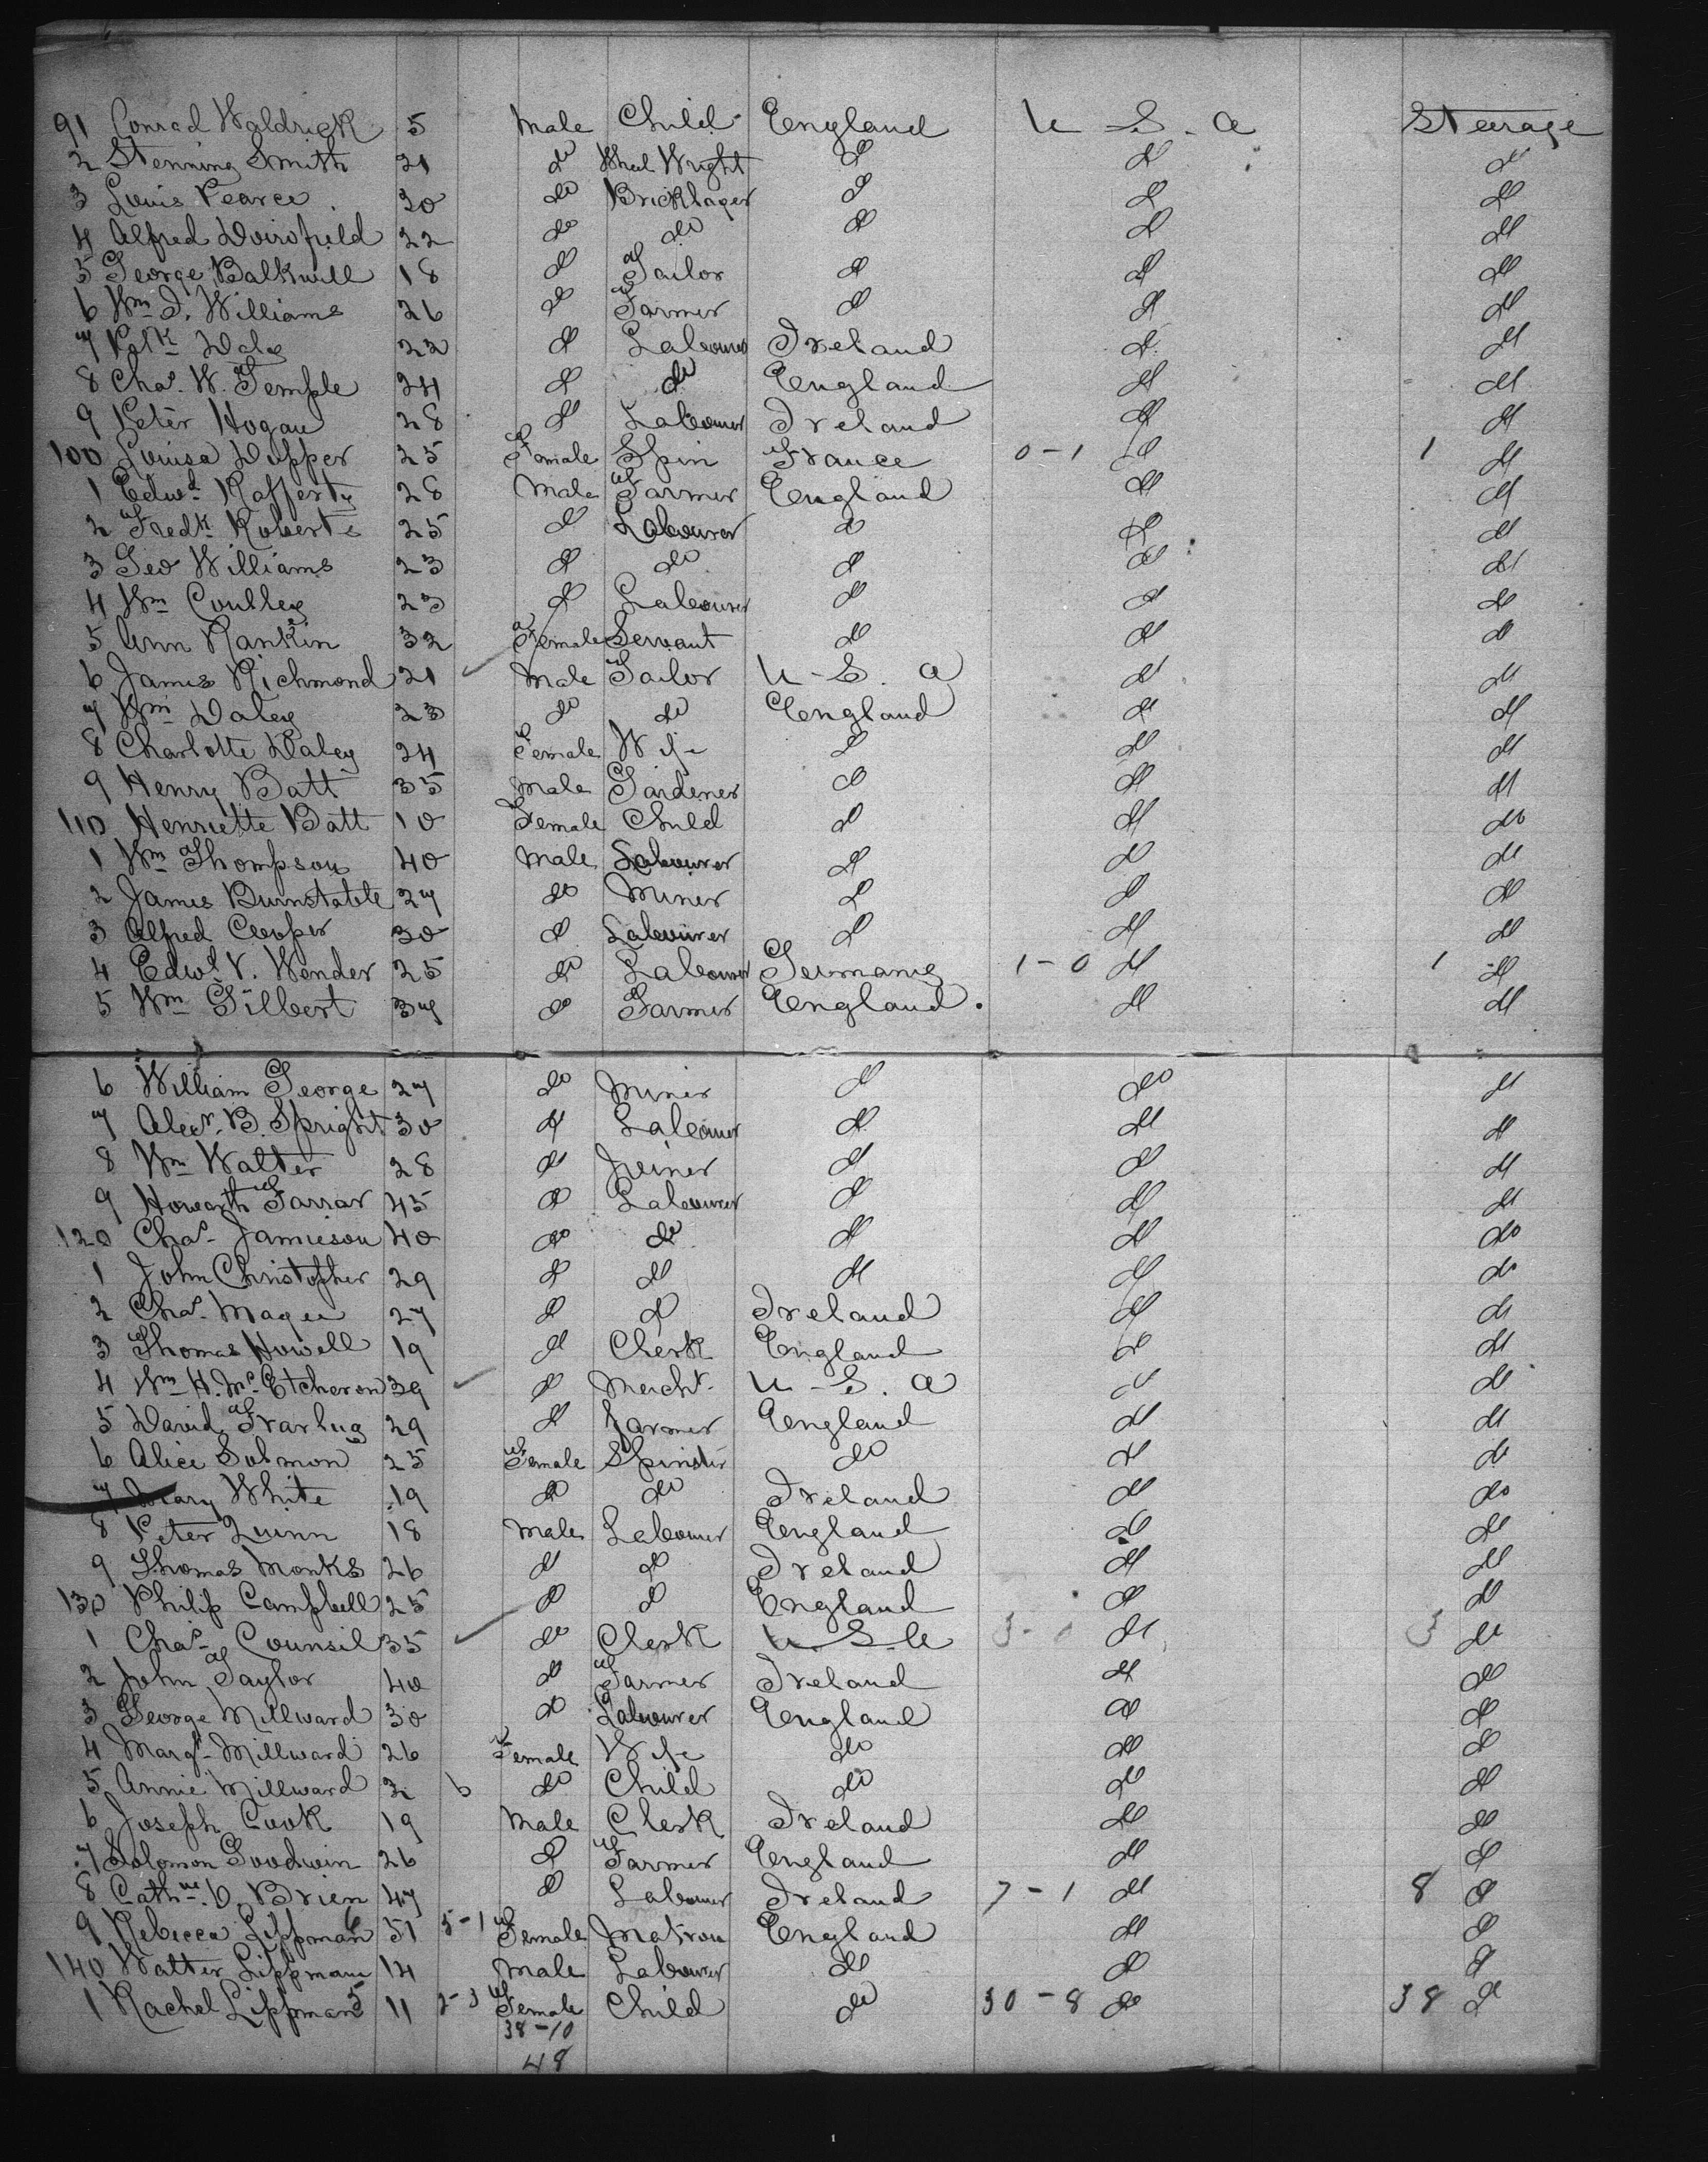 91 Conrad Waldrick 5 Male Child England U-S.a Steerage
2 Stenning Smith 21 do Wheel Wright do do do
3 Louis Pearce 20 do Bricklayer do do do
4 Alfred 22 do do do do do
5 George Balkwill 18 do Tailor do do do
6 Wm J. Williams 26 do Farmer do do do
7 Patk Daly 22 do Labourer Ireland do do
8 Chas. W. Temple 24 do do England do do
9 Peter Hogan 28 do Labourer Ireland do do
100 Louisa Dupper 25 Female Spin France 0-1 do 1 do
1 Edwd Rafferty 28 Male Farmer England do do
2 Fredk Roberts 25 do Labourer do do do
3 Geo Williams 23 do do do do do
4 Wm Coulley 23 do Labourer do do do
5 Ann Rankin 32 Female Servant do do do
6 James Richmond 21 Male Tailor U-S.a do do
7 Wm Daley 23 do do England do do
8 Charlotte Daley 24 Female Wife do do do
9 Henry Batt 35 Male Gardener do do do
110 Henriette Batt 10 Female Child do do do
1 Wm Thompson 40 Male Labourer do do do
2 James Burnstable 27 do Miner do do do
3 Alfred Cooper 30 do Labourer do do do
4 Edwd V. Wender 25 do Labourer Germany 1-0 do 1 do
5 Wm Gilbert 37 do Farmer England. do do
6 William George 27 do Miner do do do
7 Alexr. B. Spright 30 do Labourer do do do
8 Wm Walter 28 do Joiner do do do
9 Howarth Farrar 45 do Labourer do do do
120 Chas. Jamieson 40 do do do do do
1 John Christopher 29 do do do do do
2 Chas. Magee 27 do do Ireland do do
3 Thomas Howell 19 do Clerk England do do
4 Wm H. Mc Etcheron 39 do Mercht. U-S.a do do
5 David 29 do Farmer England do do
6 Alice Solmon 25 Female Spinster do do do
7 Mary White 19 do do Ireland do do
8 Peter Quinn 18 Male Labourer England do do
9 Thomas Monks 26 do do Ireland do do
130 Philip Campbell 25 do do England do do
1 Chas. Counsil 35 do Clerk U.S.a 3- do 3 do
2 John Taylor 40 do Farmer Ireland do do
3 George Millward 30 do Labourer England do do
4 Margt. Millward 26 Female Wife do do do
5 Annie Millward 2 6 do Child do do do
6 Joseph Cook 19 Male Clerk Ireland do do
7 Solomon Goodwin 26 do Farmer England do do
8 Cathne. O. Brien 47 do Labourer Ireland 7-1 do 8 do
9 Rebecca Lippman 6 51 5-1 Female Matron England do do
140 Walter Lippman 14 Male Labourer do do do
1 Rachel Lippman 5 11 2-3 Female Child do 30-8 do 38 do
38-10
48